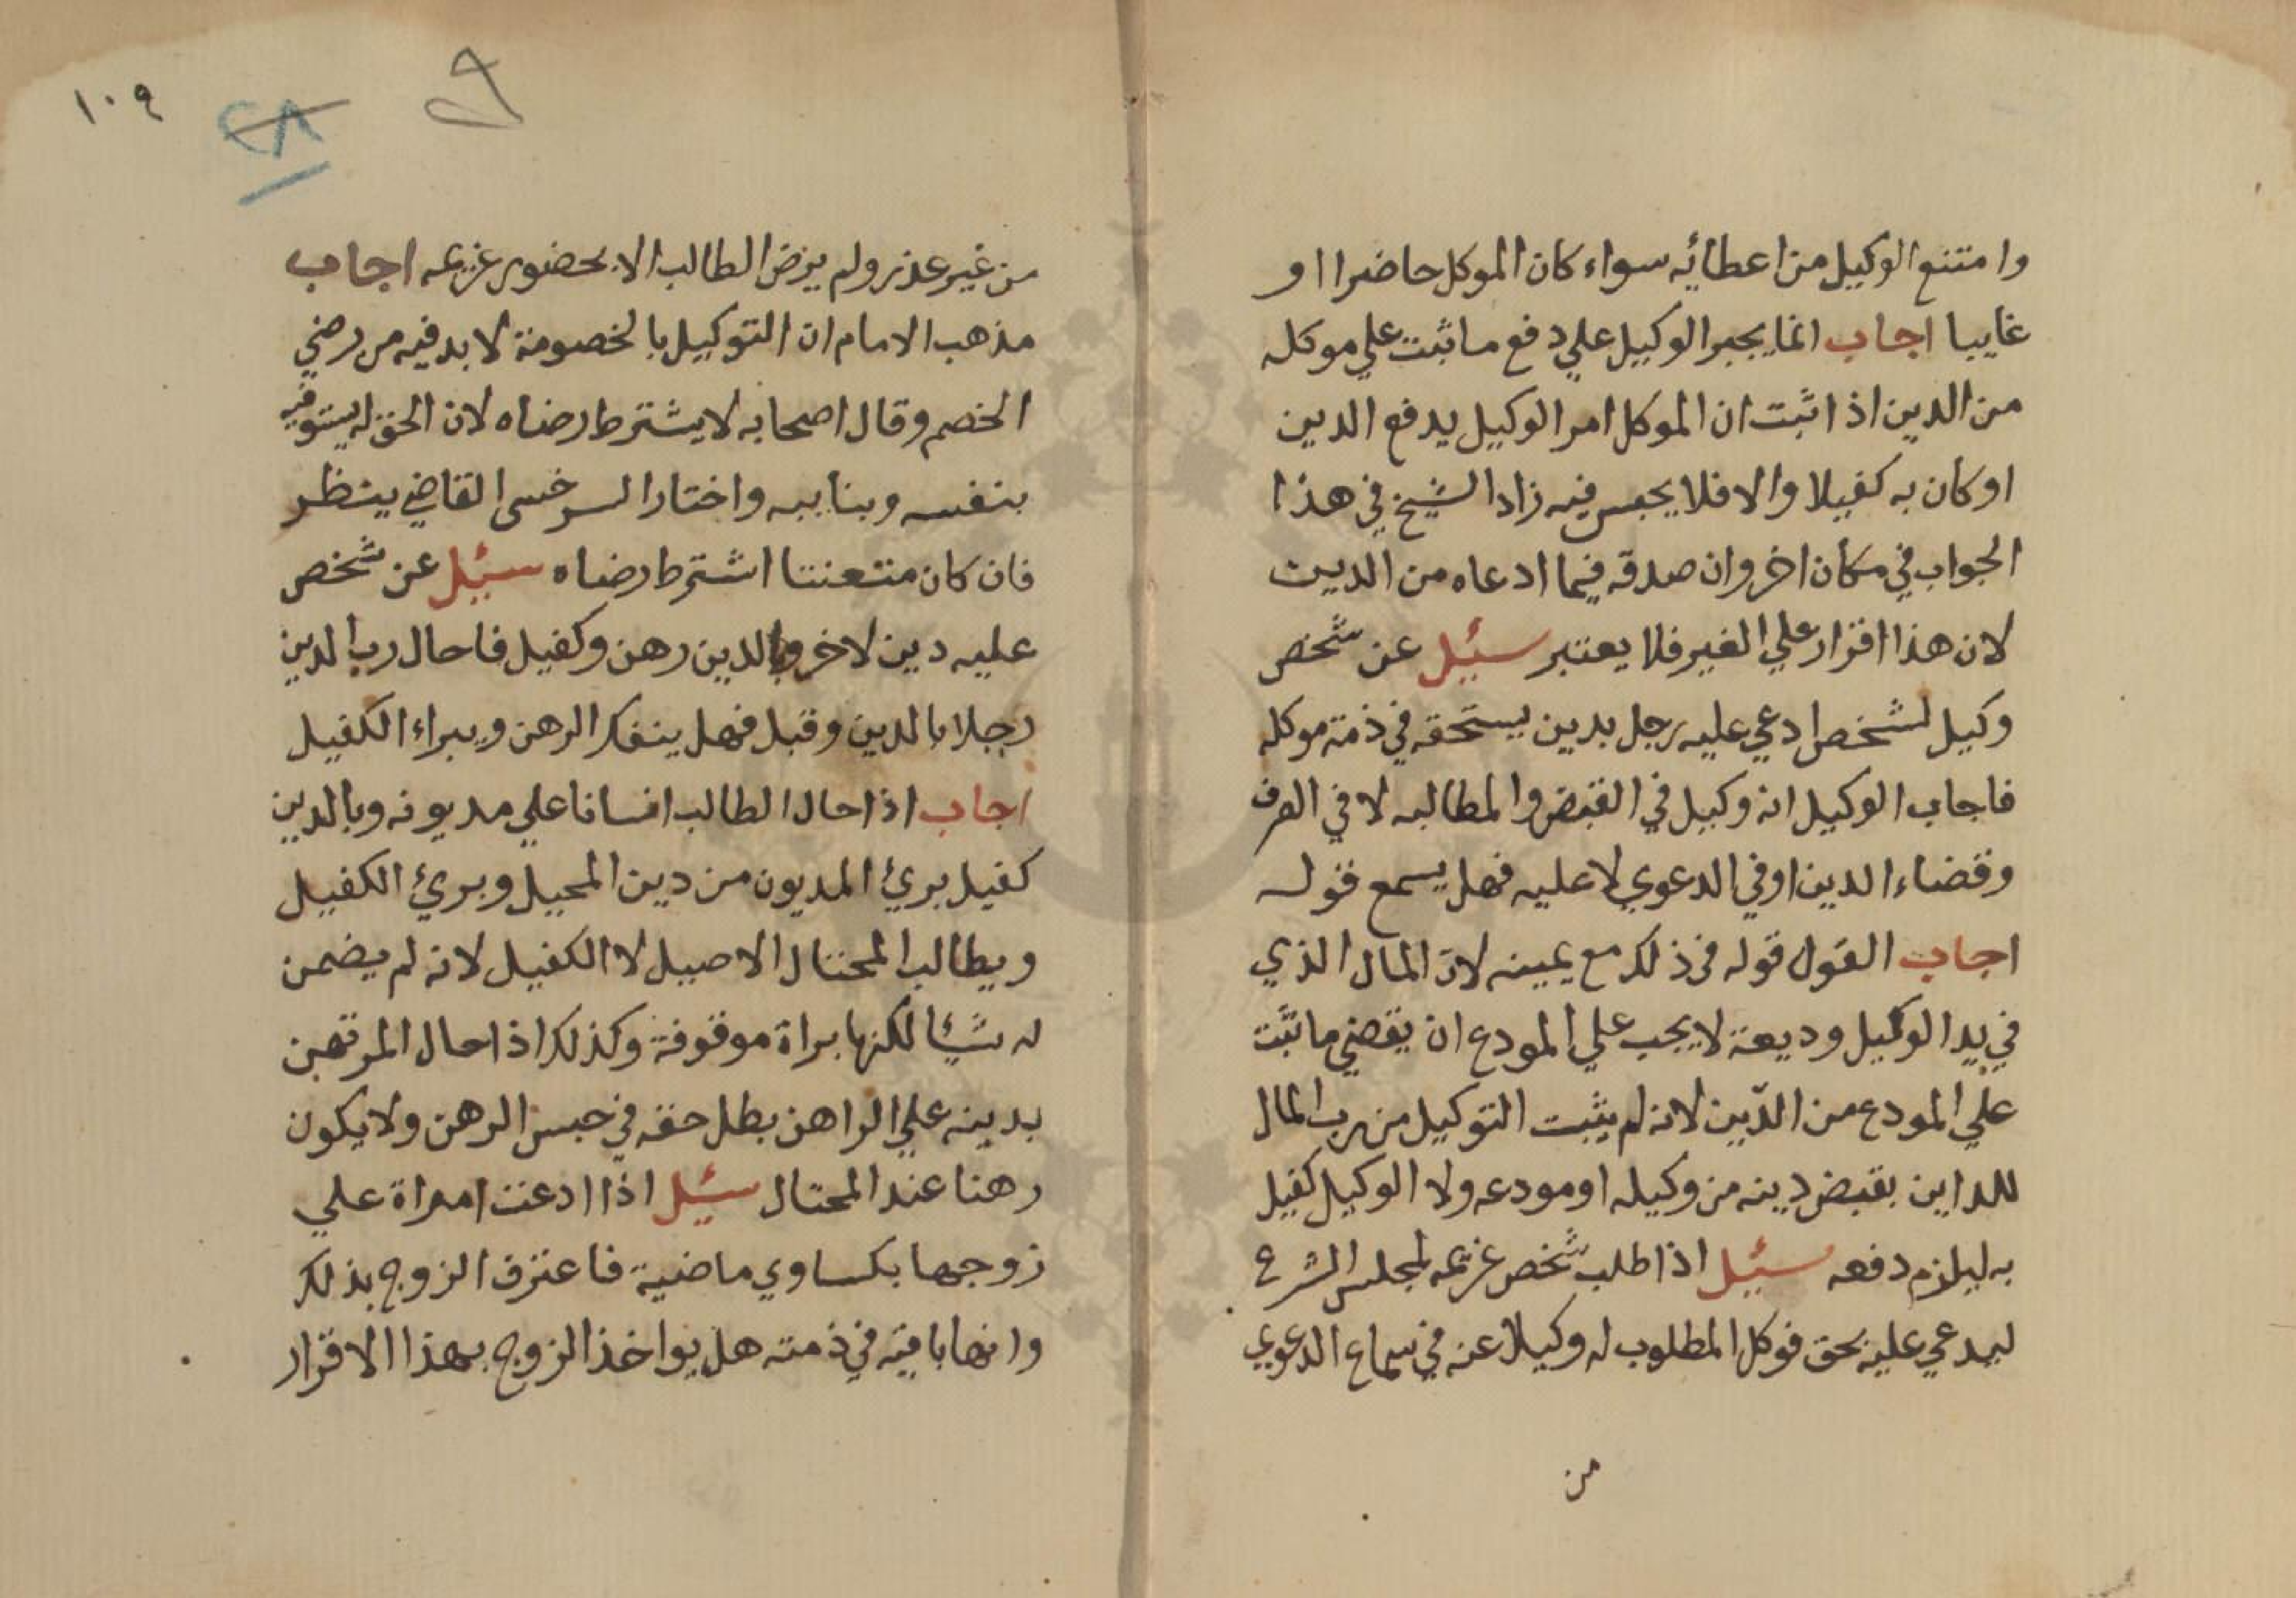 وامتنع الوكيل من اعطائه سواء كان الموكل حاضرا او
غايبا اجاب انما يجبر الوكيل علي دفع ما ثبت علي موكله
من الدين اذا ثبت ان الموكل امر الوكيل يدفع الدين
او كان به كفيلا والا فلا يحبس فيه زاد الشيخ في هذا
الجواب في مكان اخر وان صدقه فيما ادعاه من الدين
لان هذا اقرار علي الغير فلا يعتبر سئيل عن شخص
وكيل لشخص ادعي عليه رجل بدين يستحقه في ذمة موكله
فاجاب الوكيل انه وكيل في القبض والمطالبه لا في الصرف
وقضاء الدين او في الدعوي لا عليه فهل يسمع قوله
اجاب القول قوله في ذلك مع يمينه لان المال الذي
في يد الوكيل وديعة لا يجب علي المودع ان يقضي ما ثبت
علي المودع من الدين لانه لم يثبت التوكيل من رب المال
للداين بقبض دينه من وكيله او مودعه ولا الوكيل كفيل
به ليلزم دفعه سئيل اذا طلب شخص غريمه لمجلس الشرع
ليدعي عليه بحق فوكل المطلوب له وكيلا عنه في سماع الدعوي
من
١٠٩
٢٨
من غير عذر ولم يرض الطالب الا بحضور غريمه اجاب
مذهب الامام ان التوكيل بالخصومة لا بد فيه من رضي
الخصم وقال اصحابه لا يشترط رضاه لان الحق له يستوفيه
بنفسه وبنايبه واختار السرخسي القاضي ينظر
فان كان متعنتا اشترط رضاه سئيل عن شخص
عليه دين لاخر وبالدين رهن وكفيل فاحال رب الدين
رجلا بالدين وقبل فهل ينفك الرهن ويبراء الكفيل
اجاب اذا حال الطالب انسانا علي مديونه وبالدين
كفيل برئ المديون من دين المحيل وبرئ الكفيل
ويطالب المحتال الاصيل لا الكفيل لانه لم يضمن
له شيئا لكنها براة موقوفة وكذلك اذا حال المرتهن
بدينه علي الراهن بطل حقه في حبس الرهن ولا يكون
رهنا عند المحتال سئيل اذا ادعت امراة علي
زوجها بكساوي ماضية فاعترف الزوج بذلك
وانها باقية في ذمته هل يواخذ الزوج بهذا الاقرار